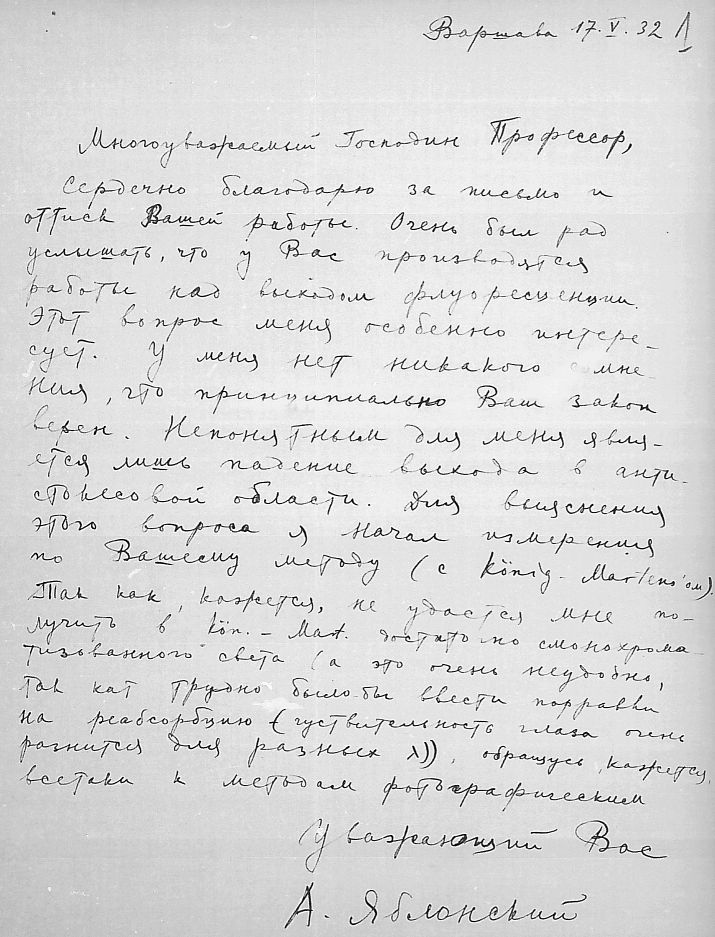 Варшава 17.V.32 1
Многоуважаемый Господин Профессор,
Сердечно благодарю за письмо и
оттиск Вашей работы. Очень был рад
услышать, что у Вас производятся
работы над выходом флуоресценции.
Этот вопрос меня особенно интере-
сует. У меня нет никакого сомне-
ния, что принципиально Ваш закон
верен. Непонятным для меня явля-
ется лишь падение выхода в анти-
стоксовой области. Для выяснения
этого вопроса я начал измерения
по Вашему методу (с König-Martens'ом).
Так как, кажется, не удастся мне по-
лучить в Kön.-Mart. достаточно смонохрома-
тизованного света (а это очень неудобно,
так кат трудно было-бы ввести поправки
на реабсорбцию (чуствительность глаза очень
рагнится для разных λ)), обращусь, кажется,
всетаки к методам фотографическим
Уважающий Вас
А. Яблонский